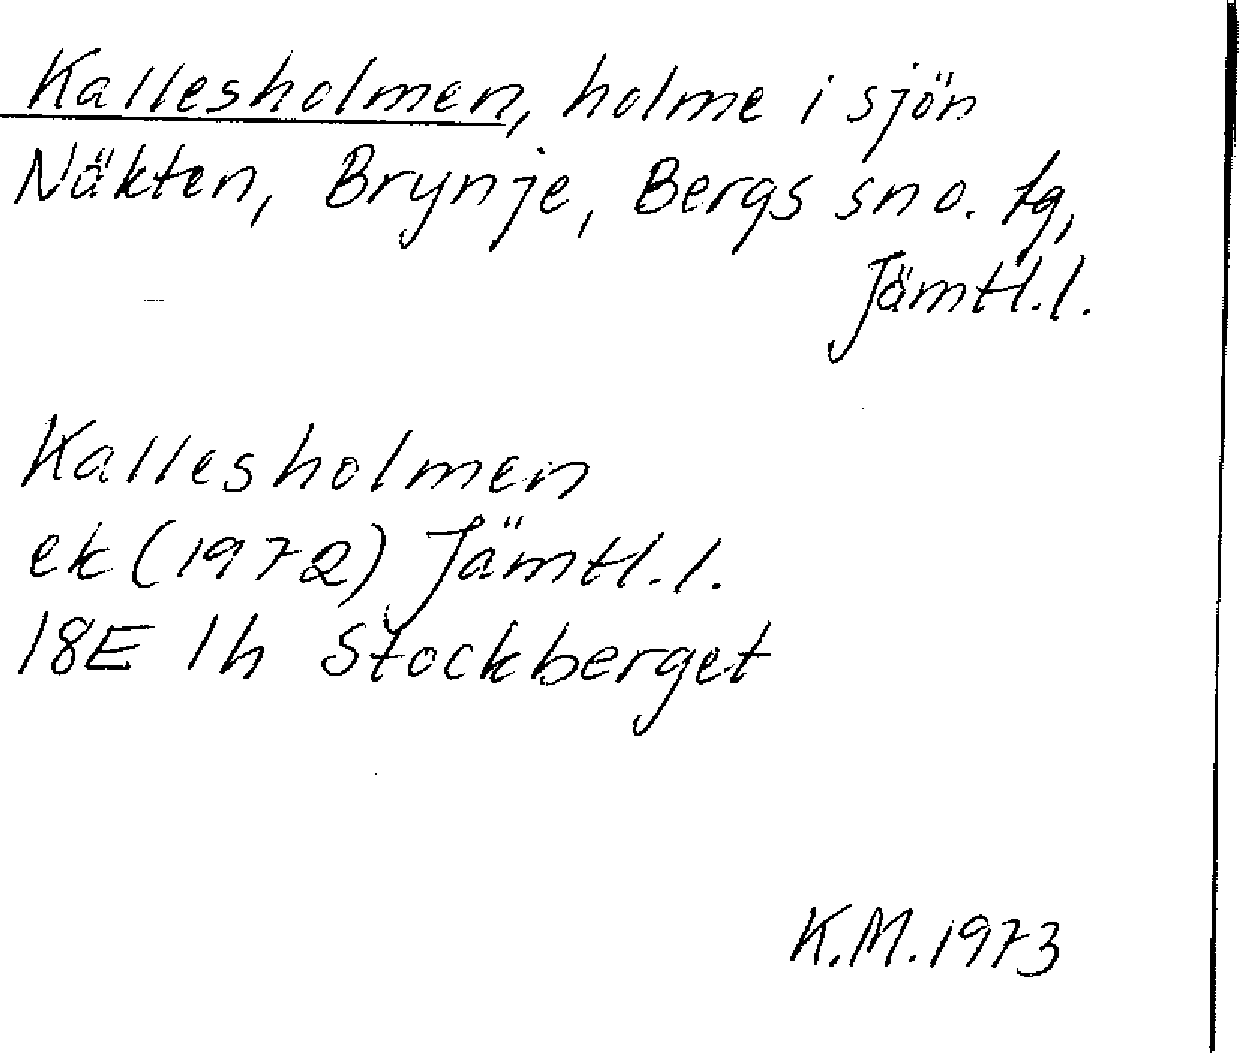 Kallesholmen, holme i sjön
Näkten, Brynje, Bergs sn o. tg,
Jämtl.l.
Kallesholmen
ek (1972) Jämtl.l.
18E 1h Stockberget
K.M. 1973